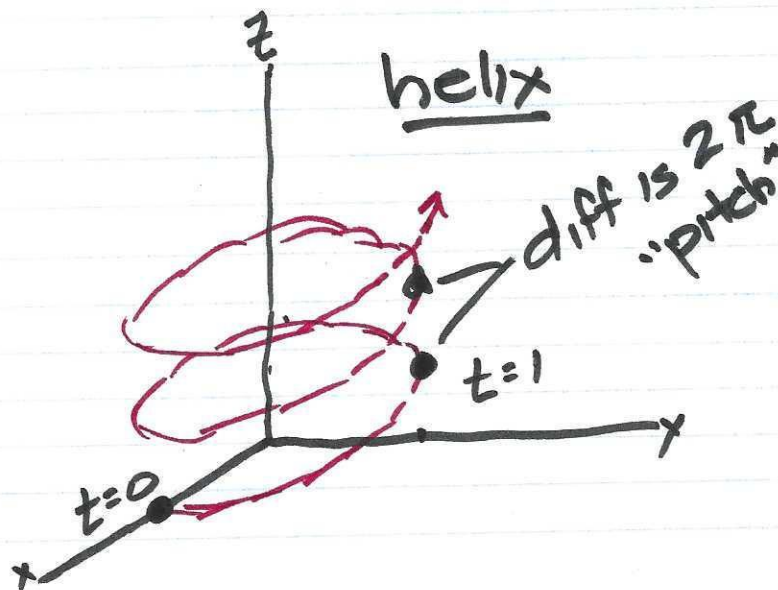 z
helix
diff is 2π
"pitch"
t=1
y
t=0
x